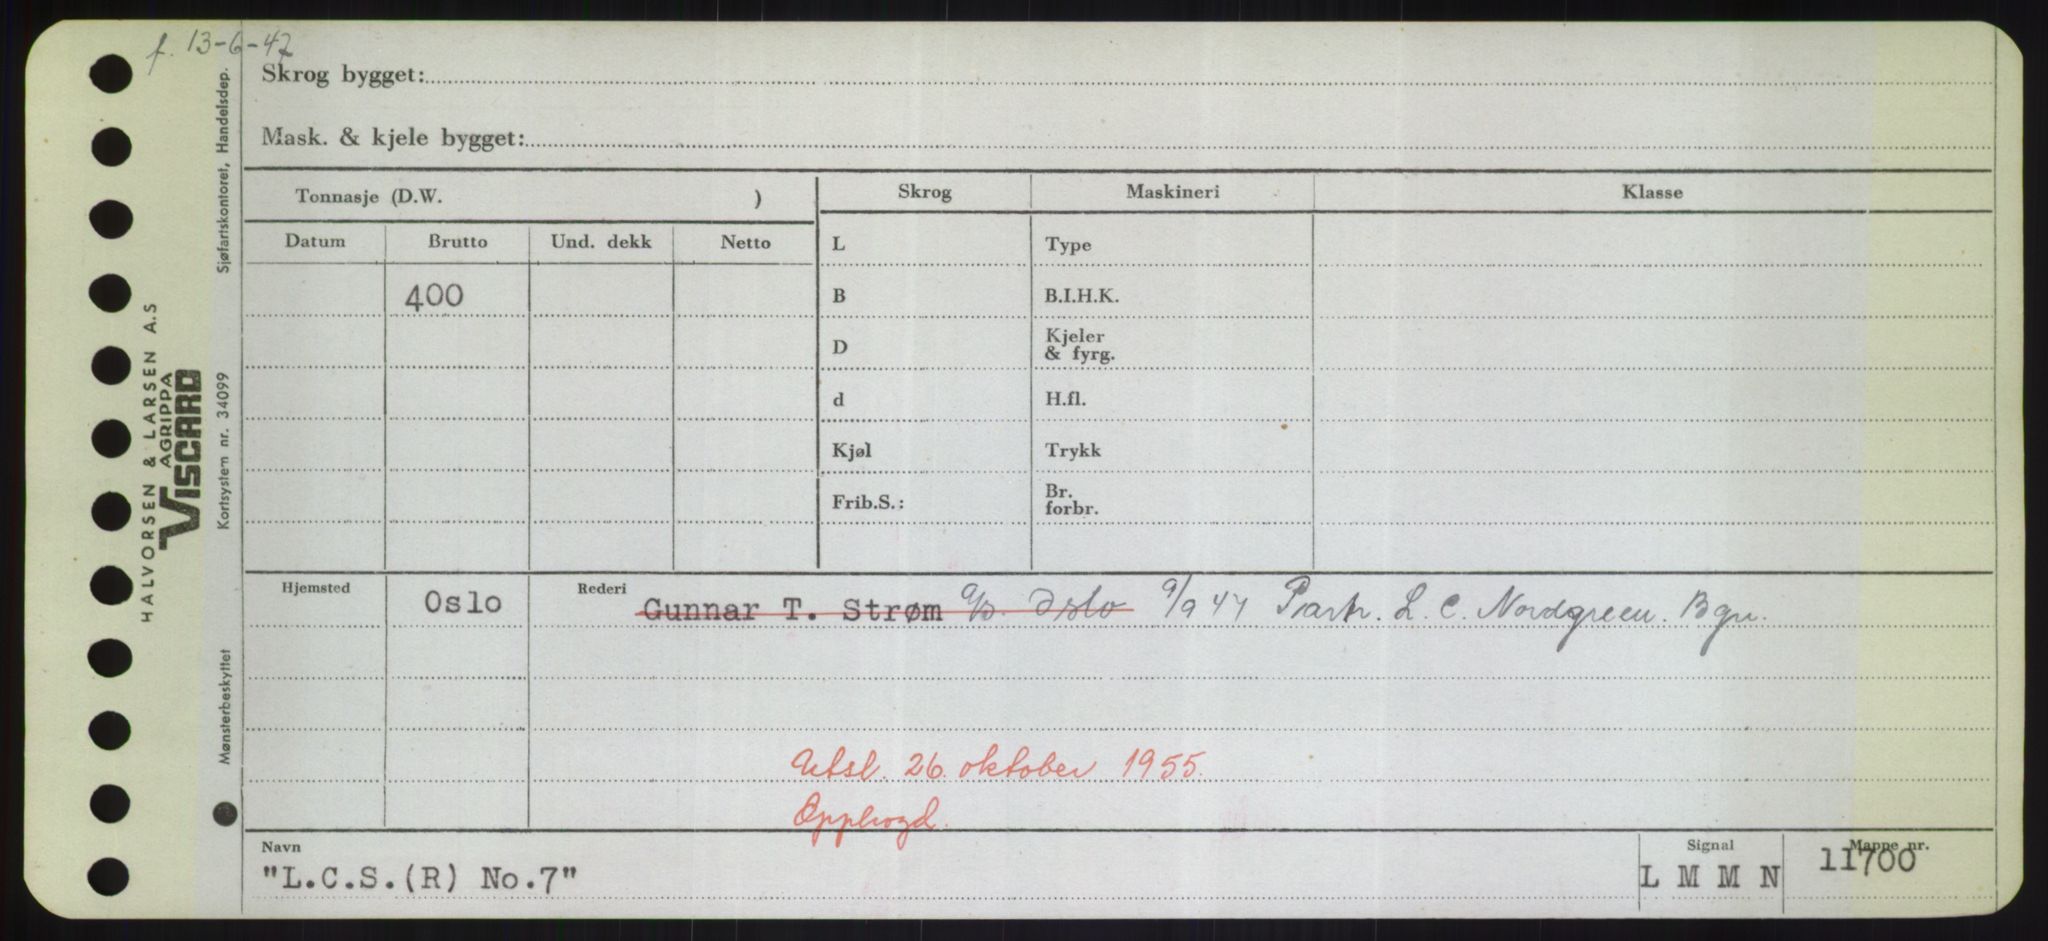 f. 13-6-47
Skrog bygget:
Mask. & kjele bygget:
Tonnasje (D.W. )
Skrog Maskineri Klasse
Datum Brutto Und. dekk Netto
L Type
400
B B.I.H.K.
D Kjeler & fyrg.
d H.fl.
Kjøl Trykk
Frib.S.: Br. forbr.
Hjemsted Oslo Rederi Gunnar T. Strøm Oslo 9/9 47 Partr. L. C. Nordgreen. Bgn.
Utsl. 26. oktober 1955.
Opphogd.
Navn Signal Mappe nr.
"L.C.S.(R) No.7" L M M N 11700
HALVORSEN & LARSEN A.S
AGRIPPA
VISCARD
Mønsterbeskyttet Kortsystem nr. 34099 Sjøfartskontoret, Handelsdep.